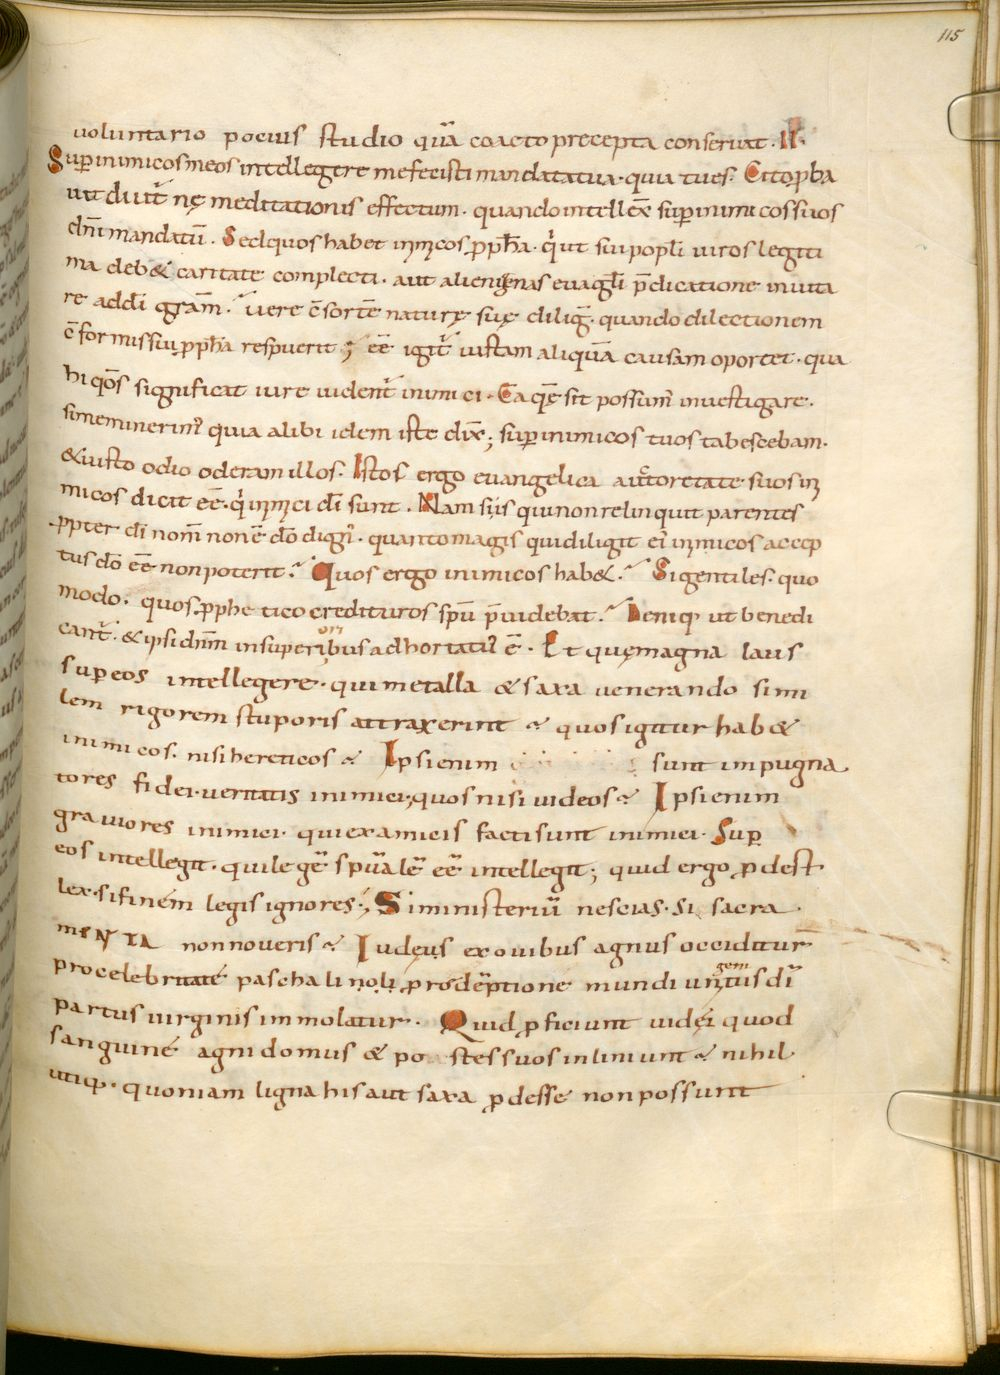 115
uoluntario pocius studio quā coacto precepta conseruat. II.
Sup inimicos meos intellegere me fecisti mandata tua. quia tu es. Cito pba
uit diuit̄ nę meditationis effectum. quando intellex̄ sup inimicos suos
dn̄i mandatū. Sed quos habet inimicos ppħa. q̇ ut sui popłi uiros legiti
ma deb& caritate complecti. aut alienigenas euāgłi p̄dicatione inuita
re ad dī grām. uere ē sorte naturę suę diligē. quando dilectionem
ē formissiuę ppħa respuerit; eē igit̄ iustam aliquā causam oportet. qua
hi q̄s significat iure uident̄ inimici. Ea quę sit possum̄ inuestigare.
si meminerim̄ quia alibi idem iste dix̄; sup inimicos tuos tabescebam.
& iusto odio oderam illos. Istos ergo euangelica auctoretate suos ini
micos dicit eē. q̇ inimici dī sunt. Nam si is qui non relinquit parentes
ppter dī nom̄ non ē dō dign̄. quanto magis qui diligit ei̇ inimicos accep
tus dō eē non poterit. Quos ergo inimicos hab&. Si gentiles. quo
modo. quos pphetico credituros spū p̄uidebat. Deniq; ut benedi
cant̄. & ipsi dn̄m in superioribus adhortatus ē. Et quę magna laus
sup eos intellegere. qui metalla & saxa uenerando simi
lem rigorem stuporis attraxerint. quos igitur hab&
inimicos. nisi hereticos. Ipsi enim sunt impugna
tores fidei. ueritatis inimici, quos nisi uideos. Ipsi enim
grauiores inimici. qui ex amicis facti sunt inimici. Sup
eos intellegit. qui legē spualē eē intellegit; quid ergo pdest
lex. si finem legis ignores; Si ministeriū nescias. si sacra
menta non noueris. Iudęus ex ouibus agnus occiditur
pro celebritate paschali noli pro redēptione mundi unigenitus dī
partus uirginis immolatur. Quid pficiunt uidęi quod
sanguine agni domus & po stes suos inliniunt. nihil
utiq;. quoniam ligna his aut saxa pdesse non possunt